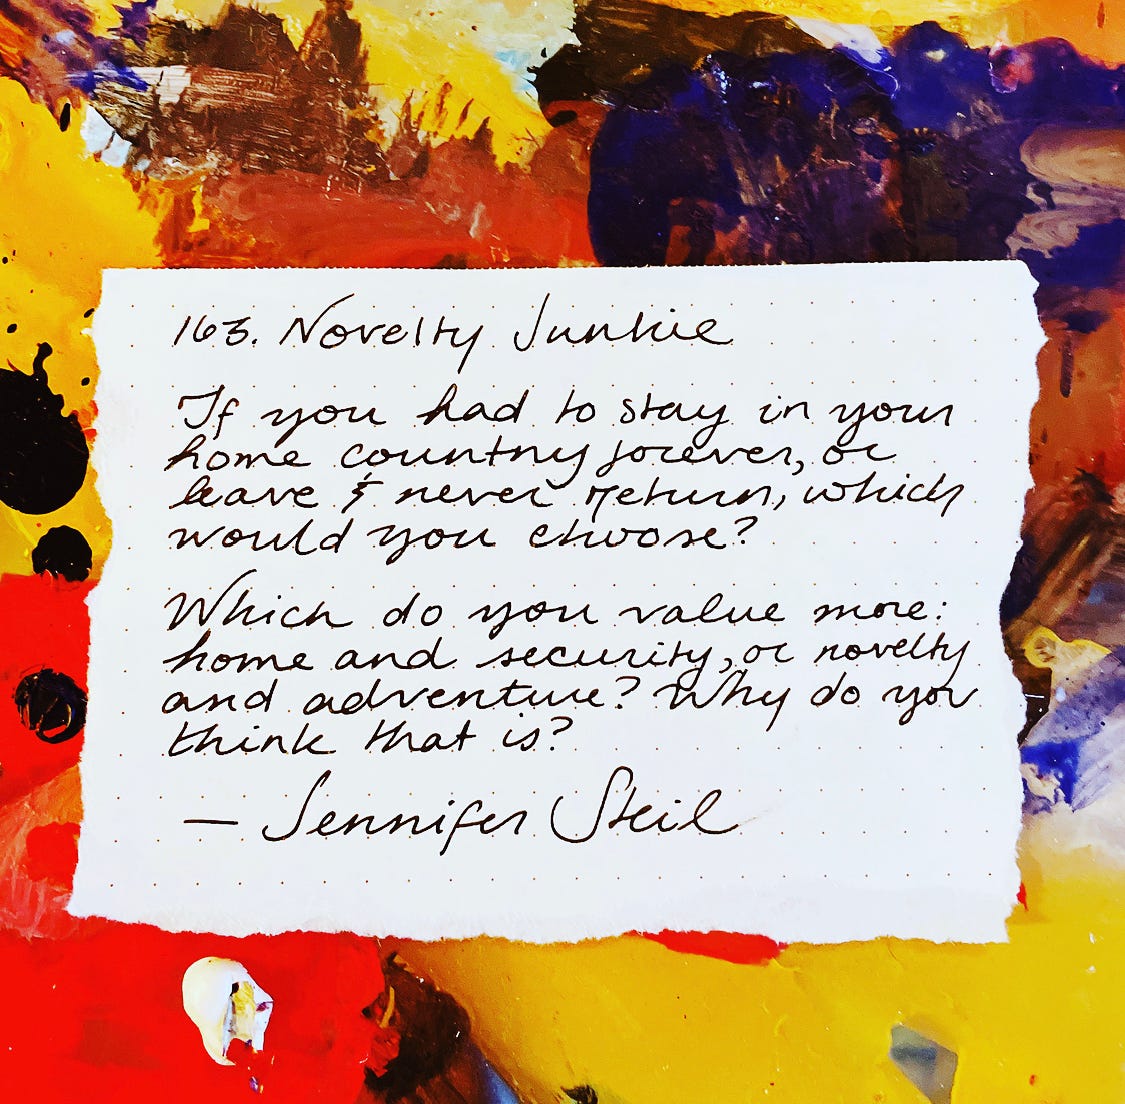 163. Novelty Junkie
If you had to stay in your
home country forever, or
leave & never return, which
would you choose?
Which do you value more:
home and security, or novelty
and adventure? Why do you
think that is?
— Jennifer Steil